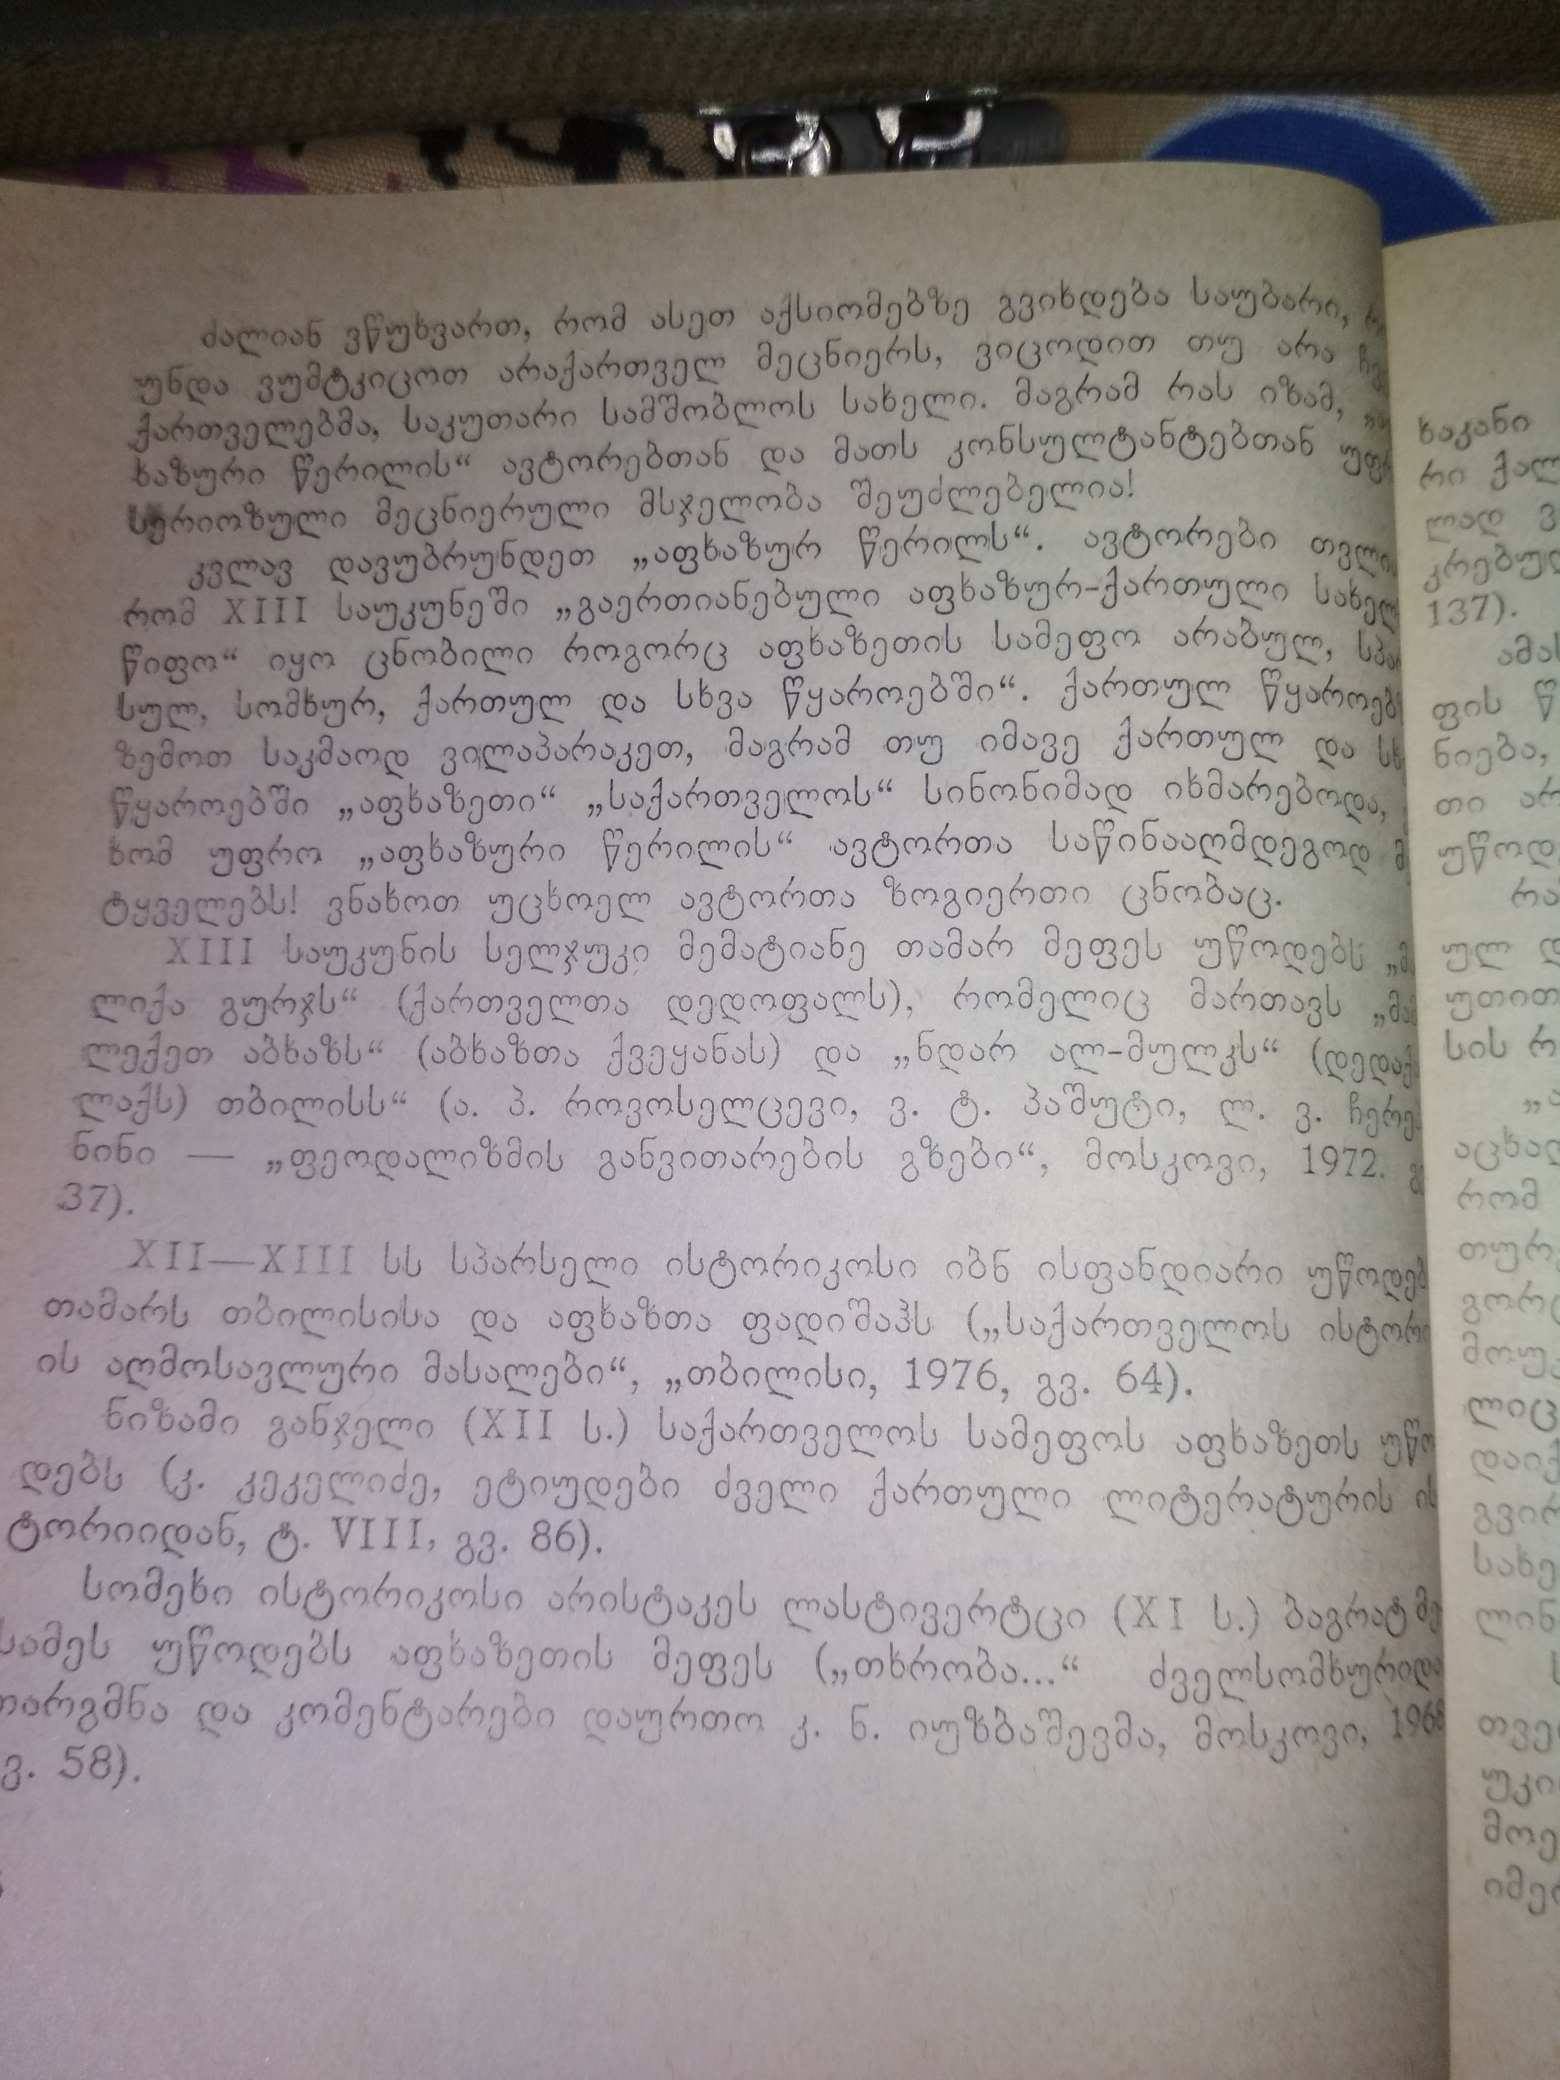 ძალიან ვწუხვართ, რომ ასეთ აქსიომებზე გვიხდება საუბარი,
უნდა ვუმტკიცოთ არაქართველ მეცნიერს, ვიცოდით თუ არა
ქართველებმა, საკუთარი სამშობლოს სახელი. მაგრამ რას იზამ,
ხაზური წერილის“ ავტორებთან და მათს კონსულტანტებთან უფ
სერიოზული მეცნიერული მსჯელობა შეუძლებელია!
კვლავ დავუბრუნდეთ „აფხაზურ წერილს“. ავტორები თვლი
რომ XIII საუკუნეში „გაერთიანებული აფხაზურ-ქართული სახელ
წიფო“ იყო ცნობილი როგორც აფხაზეთის სამეფო არაბულ, სპა
სულ, სომხურ, ქართულ და სხვა წყაროებში“. ქართულ წყაროებ
ზემოთ საკმაოდ ვილაპარაკეთ, მაგრამ თუ იმავე ქართულ და სხ
წყაროებში „აფხაზეთი“ „საქართველოს“ სინონიმად იხმარებოდა,
ხომ უფრო „აფხაზური წერილის“ ავტორთა საწინააღმდეგოდ მ
ტყველებს! ვნახოთ უცხოელ ავტორთა ზოგიერთი ცნობაც.
XIII საუკუნის სელჯუკი მემატიანე თამარ მეფეს უწოდებს „მ
ლიქა გურჯს“ (ქართველთა დედოფალს), რომელიც მართავს „მა
ლექეთ აბხაზს“ (აბხაზთა ქვეყანას) და „ნდარ ალ-მულკს“ (დედაქ
ლაქს) თბილისს“ (ა. პ. როვოსელცევი, ვ. ტ. პაშუტი, ლ. ვ. ჩერე
ნინი — „ფეოდალიზმის განვითარების გზები“, მოსკოვი, 1972. გ
37).
XII—XIII სს სპარსელი ისტორიკოსი იბნ ისფანდიარი უწოდებ
თამარს თბილისისა და აფხაზთა ფადიშაჰს („საქართველოს ისტორი
ის აღმოსავლური მასალები“, „თბილისი, 1976, გვ. 64).
ნიზამი განჯელი (XII ს.) საქართველოს სამეფოს აფხაზეთს უწო
დებს (კ. კეკელიძე, ეტიუდები ძველი ქართული ლიტერატურის ის
ტორიიდან, ტ. VIII, გვ. 86).
სომეხი ისტორიკოსი არისტაკეს ლასტივერტცი (XI ს.) ბაგრატ მე
სამეს უწოდებს აფხაზეთის მეფეს („თხრობა...“ ძველსომხურიდა
თარგმნა და კომენტარები დაურთო კ. ნ. იუზბაშევმა, მოსკოვი, 1968
ვ. 58).
ხაკანი
რი ქალ
ლად ვ
კრებულ
137).
ამას
ფის წ
ნიება,
თი არ
უწოდ
რა
ულ დ
უთით
სის რ
„ა
აცხად
რომ
თურ
გორც
მოუ
ლიც
დაიქ
გვირ
სახე
ლინ
თვე
უკი
მოე
იმე